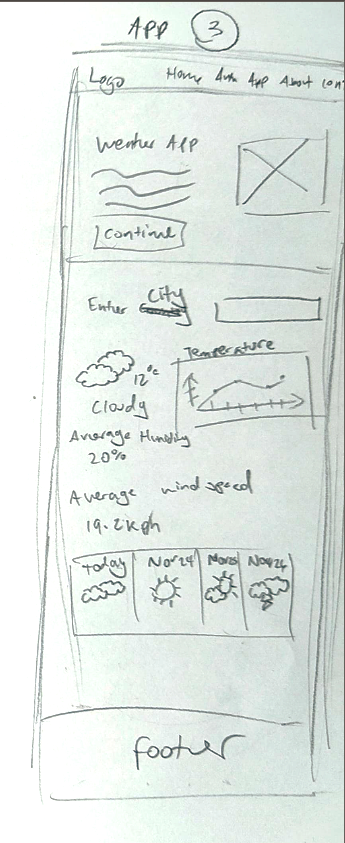 APP 3
Logo Home Auth App About Con
Weather APP
Continue
Enter City
Temperature
12°c
Cloudy
Average Humidity
20%
Average wind speed
19.2kph
Today Nov 24 Nov 24
footer